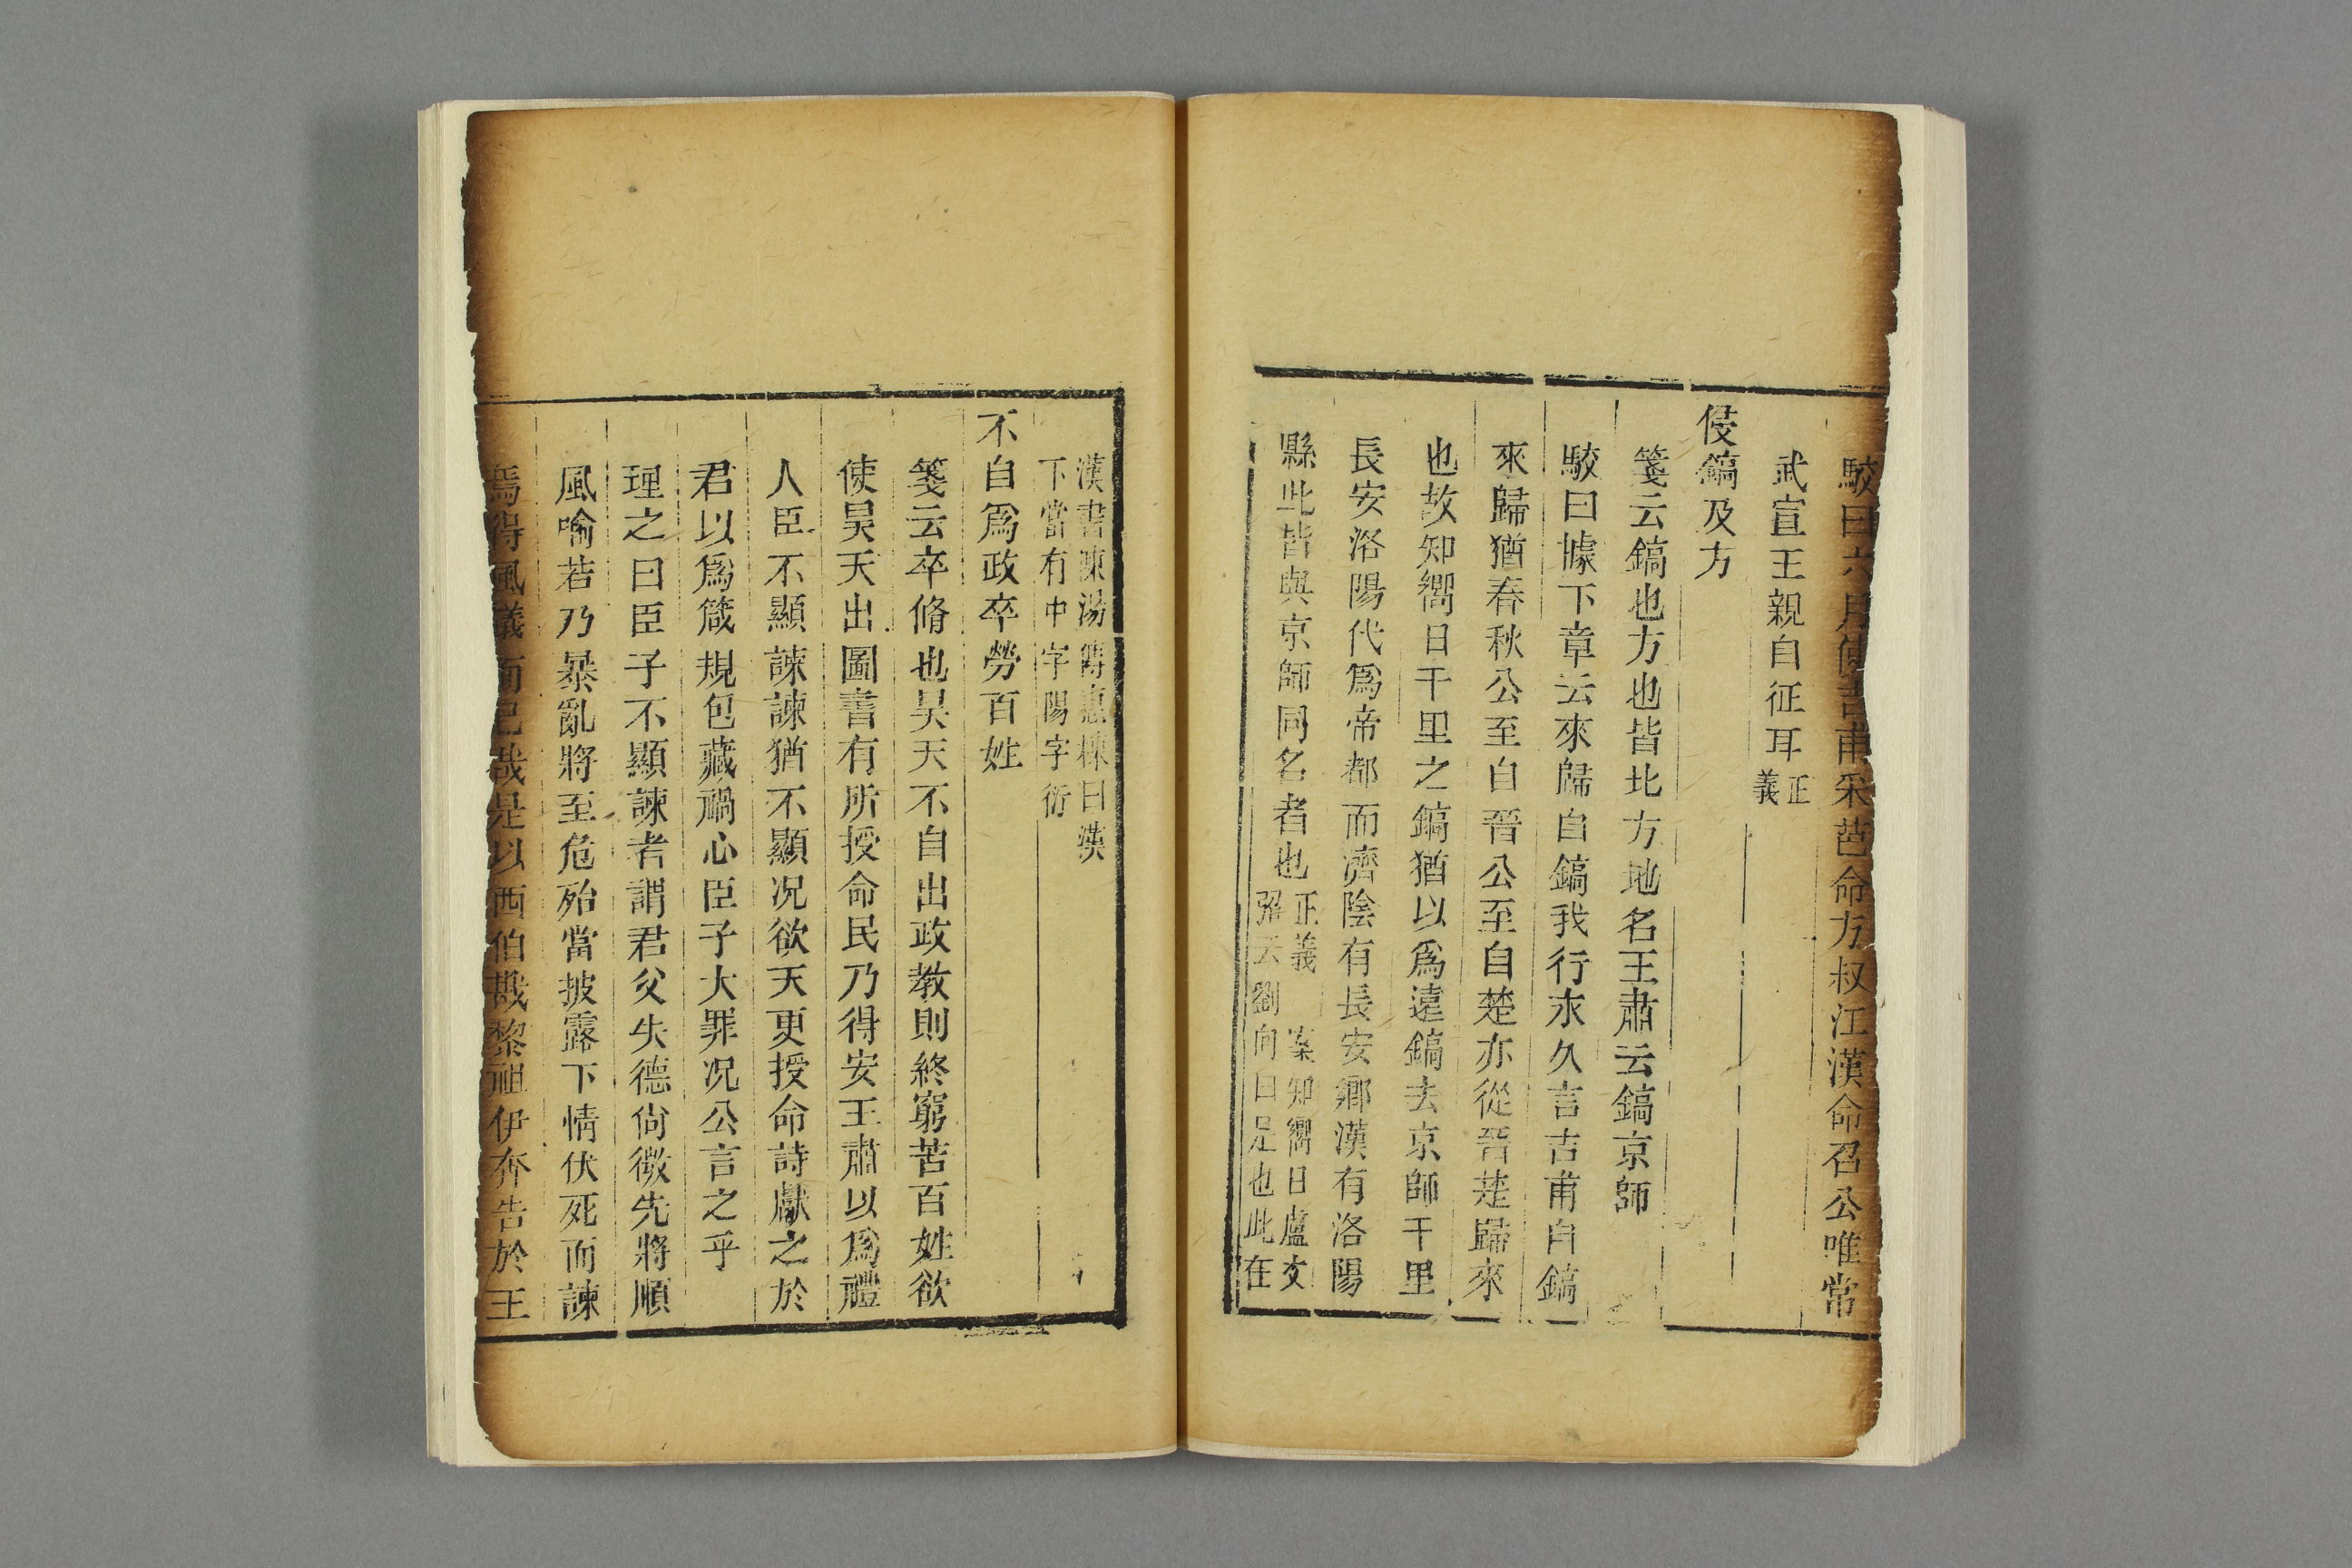 駮曰六月使吉甫采芑命方叔江漢命召公唯常
武宣王親自征耳正義
侵鎬及方
箋云鎬也方也皆北方地名王肅云鎬京師
駮曰據下章云來歸自鎬我行永久言吉甫自鎬
來歸猶春秋公至自晉公至自楚亦從晉楚歸來
也故知嚮日千里之鎬猶以爲遠鎬去京師千里
長安洛陽代爲帝都而濟陰有長安鄉漢有洛陽
縣此皆與京師同名者也正義 案知嚮日盧文
弨云劉向曰是也此在
漢書陳湯傳惠棟曰漢
下當有中字陽字衍
不自爲政卒勞百姓
箋云卒脩也昊天不自出政教則終窮苦百姓欲
使昊天出圖書有所授命民乃得安王肅以爲禮
人臣不顯諫諫猶不顯况欲天更授命詩獻之於
君以爲箴規包藏禍心臣子大罪况公言之乎
理之曰臣子不顯諫者謂君父失德尙微先將順
風喻若乃暴亂將至危殆當披露下情伏死而諫
焉得風議而已哉是以西伯戡黎祖伊奔告於王